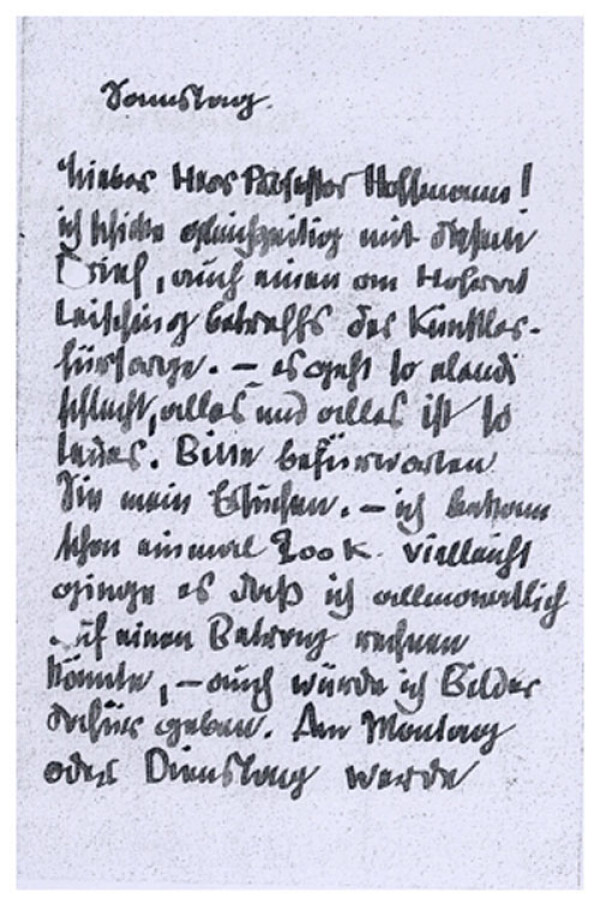 Samstag.
Lieber Herr Professor Hoffmann!
ich schicke gleichzeitig mit diesem
Brief, auch einen an Hofrat
Leisching betreffs der Künstler-
fürsorge. – es geht so elend
schlecht, alles und alles ist so
teuer. Bitte befürworten
Sie mein Ersuchen. – ich bekam
schon einmal 200 K. vielleicht
ginge es daß ich allmonatlich
auf einen Betrag rechnen
könnte, – auch würde ich Bilder
dafür geben. Am Montag
oder Dienstag werde